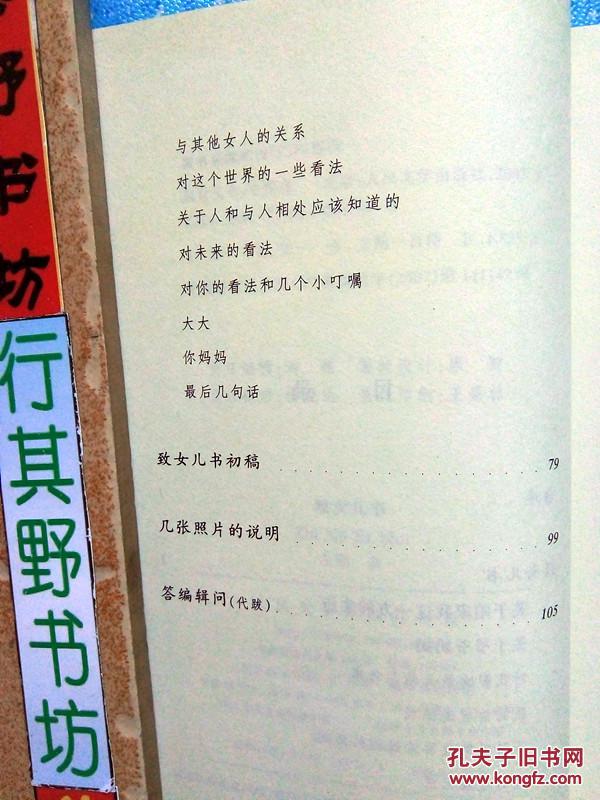 野
书
坊
行
其
野
书
坊
与其他女人的关系
对这个世界的一些看法
关于人和与人相处应该知道的
对未来的看法
对你的看法和几个小叮嘱
大大
你妈妈
最后几句话
致女儿书初稿 79
几张照片的说明 99
答编辑问(代跋) 105
孔夫子旧书网
www.kongfz.com